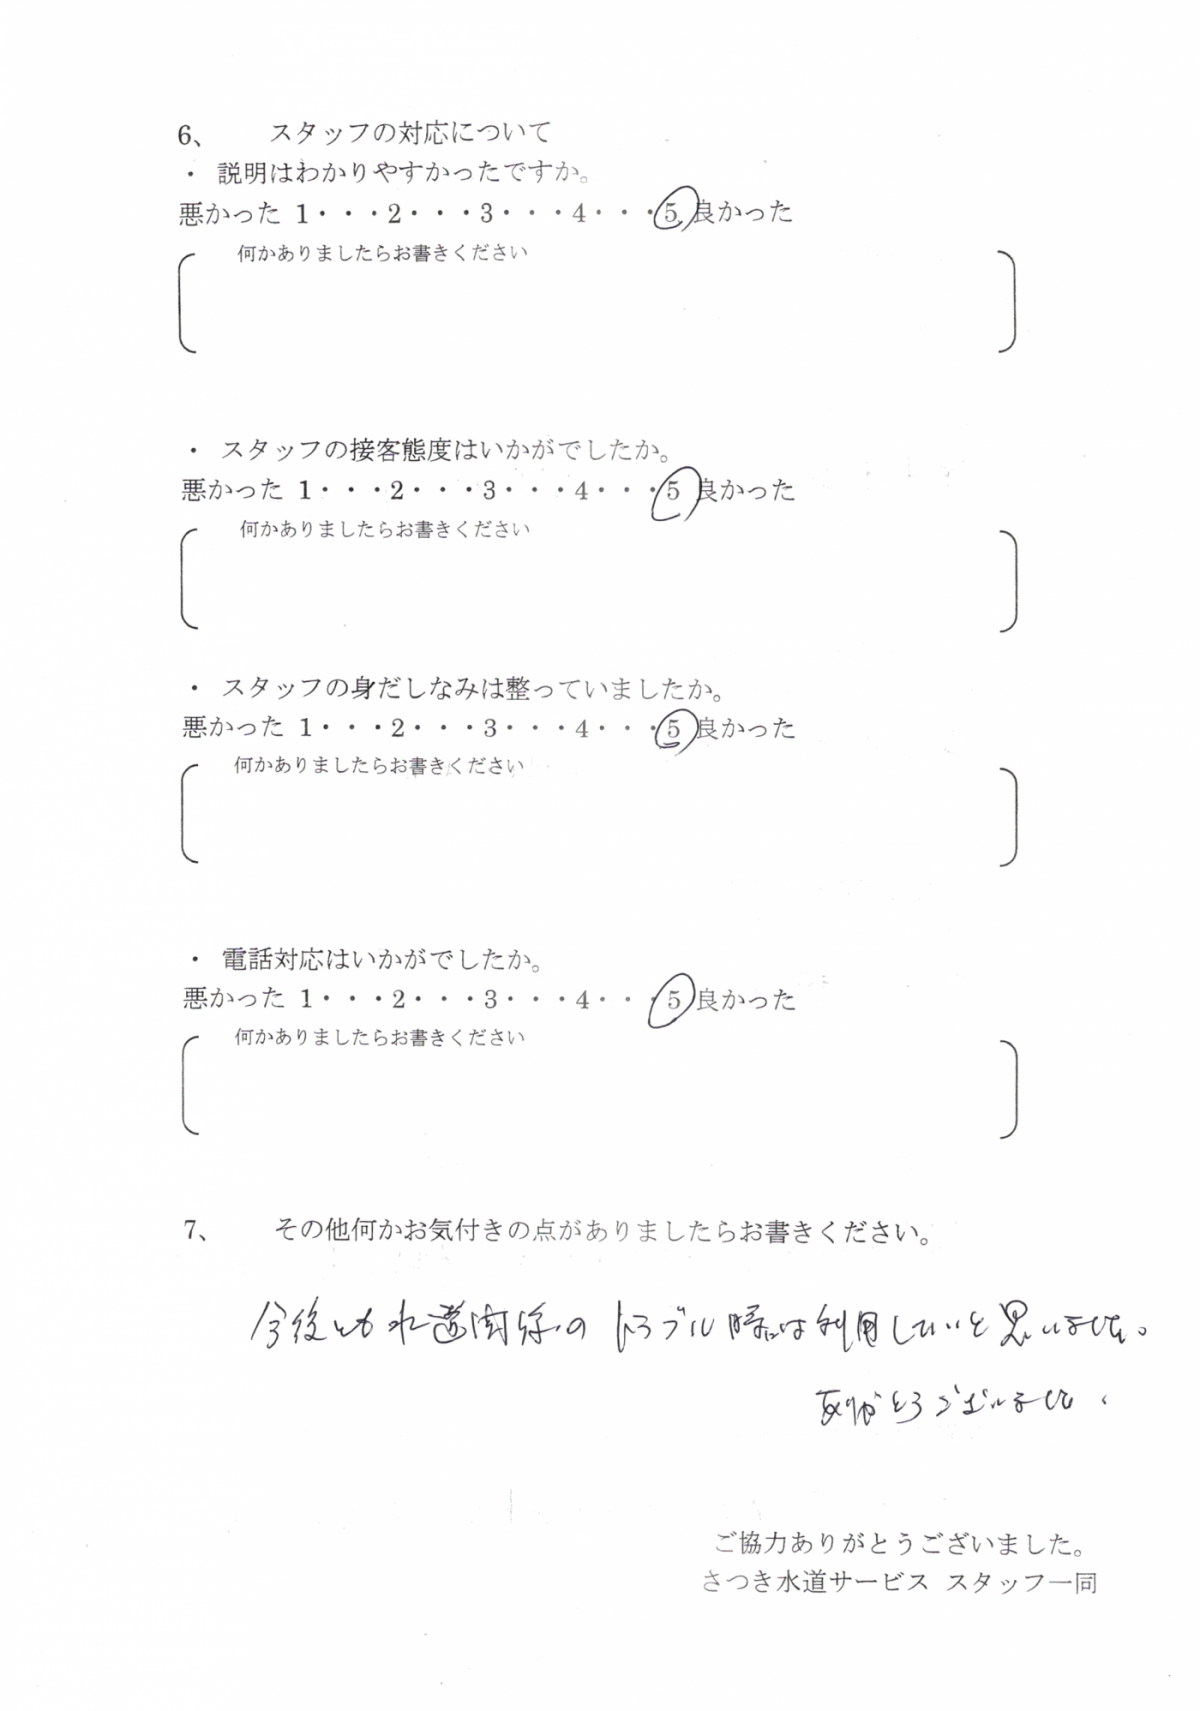 6、 スタッフの対応について
・ 説明はわかりやすかったですか。
悪かった 1・・・2・・・3・・・4・・・5 良かった
何かありましたらお書きください
・ スタッフの接客態度はいかがでしたか。
悪かった 1・・・2・・・3・・・4・・・5 良かった
何かありましたらお書きください
・ スタッフの身だしなみは整っていましたか。
悪かった 1・・・2・・・3・・・4・・・5 良かった
何かありましたらお書きください
・ 電話対応はいかがでしたか。
悪かった 1・・・2・・・3・・・4・・・5 良かった
何かありましたらお書きください
7、 その他何かお気付きの点がありましたらお書きください。
今後とも水道関係のトラブル時には利用したいと思いました。
ありがとうございました。
ご協力ありがとうございました。
さつき水道サービス スタッフ一同